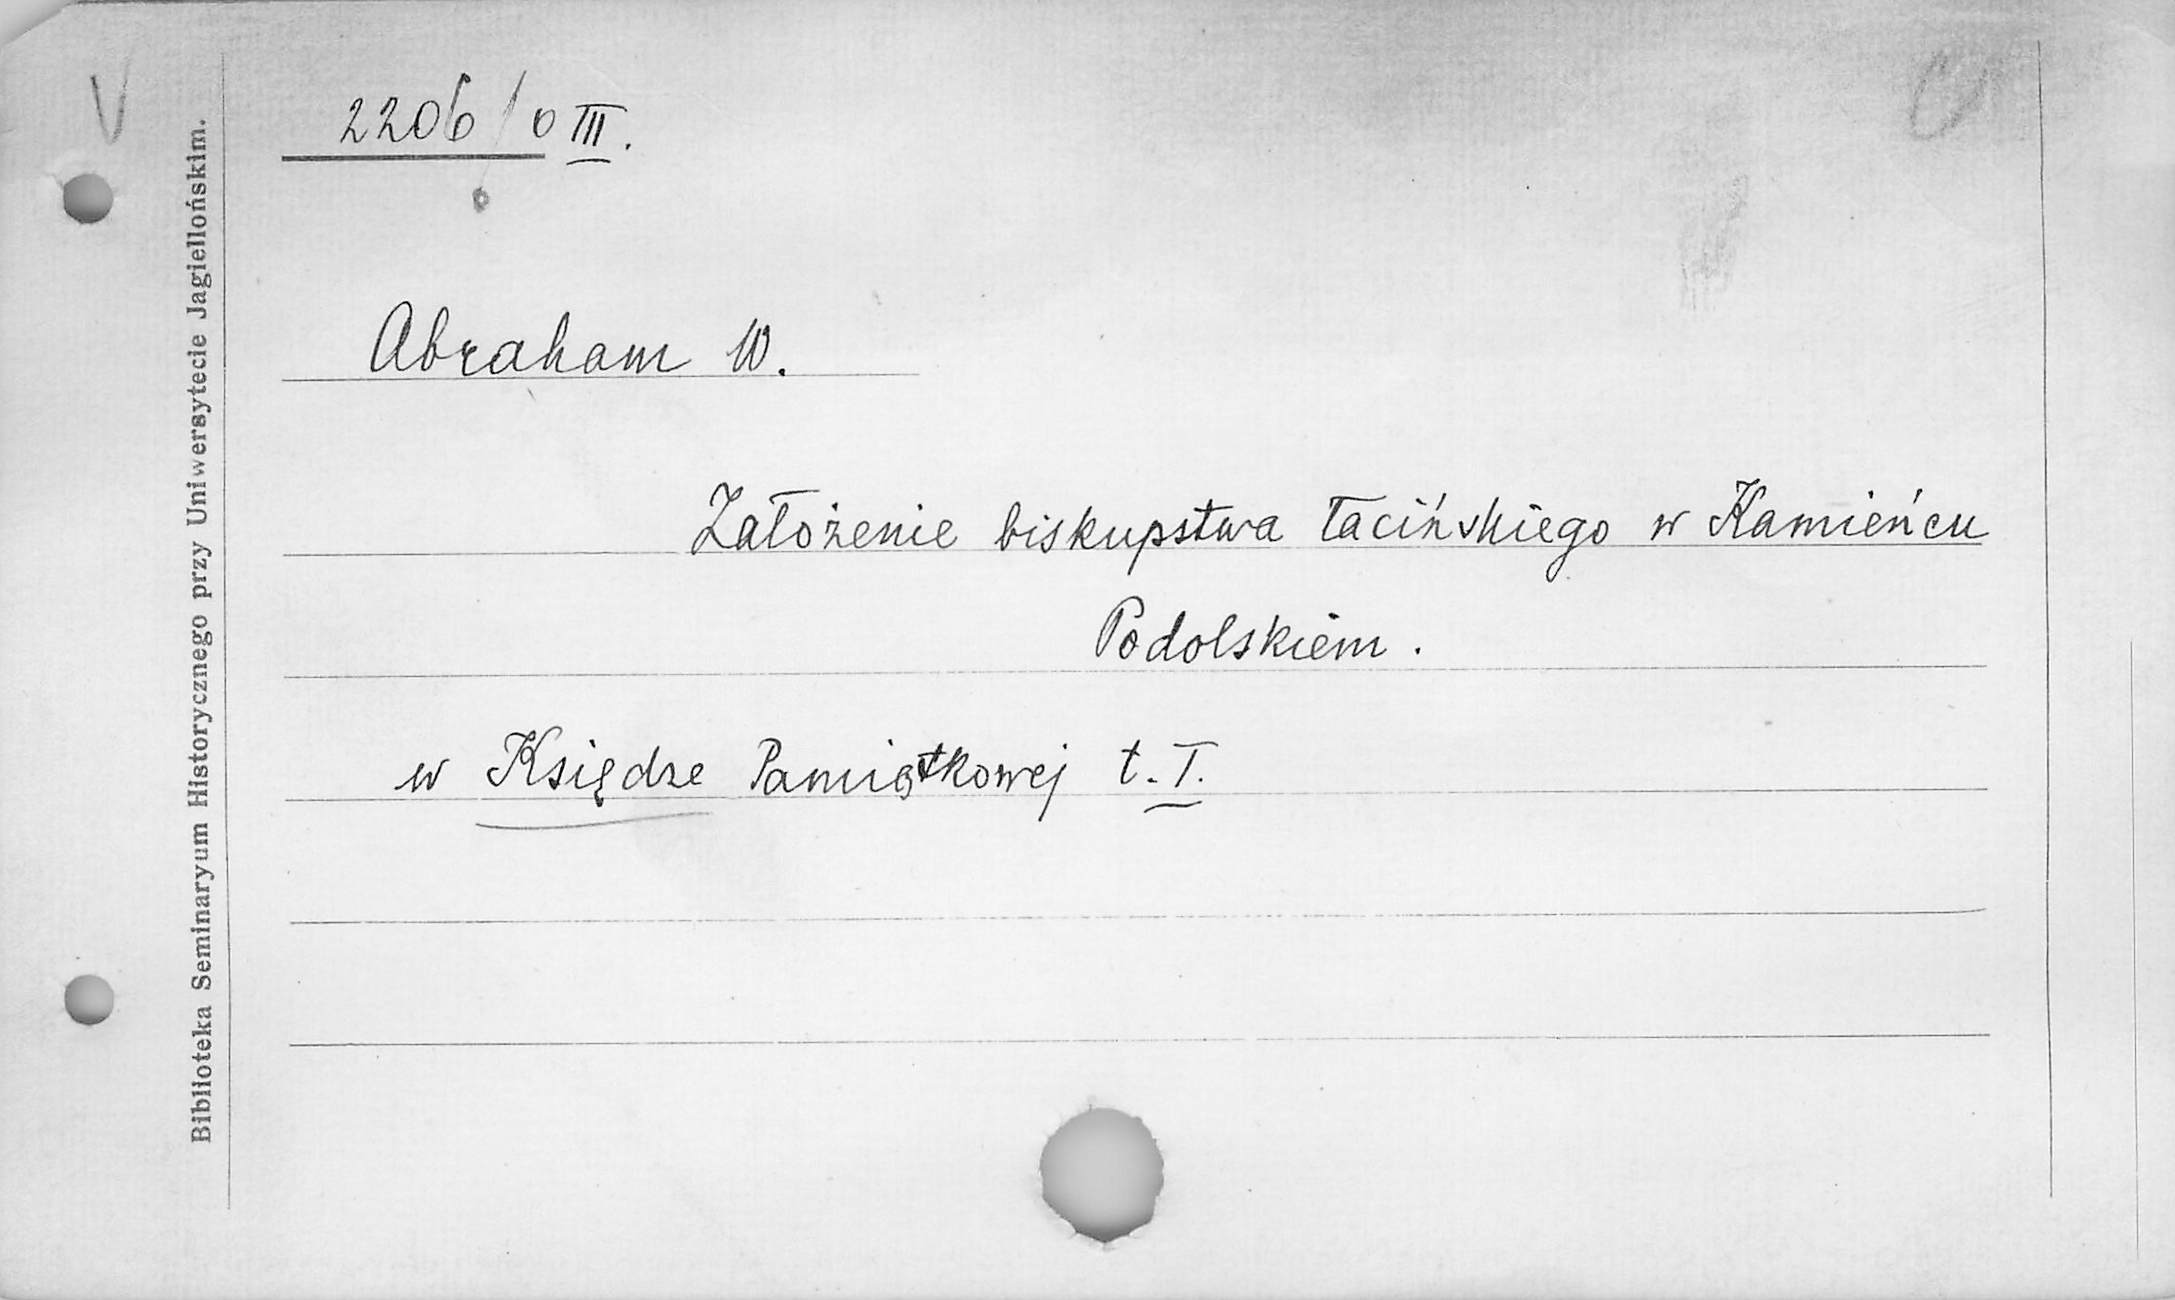 V
2206/0 III.
Abraham W.
Założenie biskupstwa łacińskiego w Kamieńcu
Podolskiem.
w Księdze Pamiątkowej t. I.
Biblioteka Seminaryum Historycznego przy Uniwersytecie Jagiellońskim.